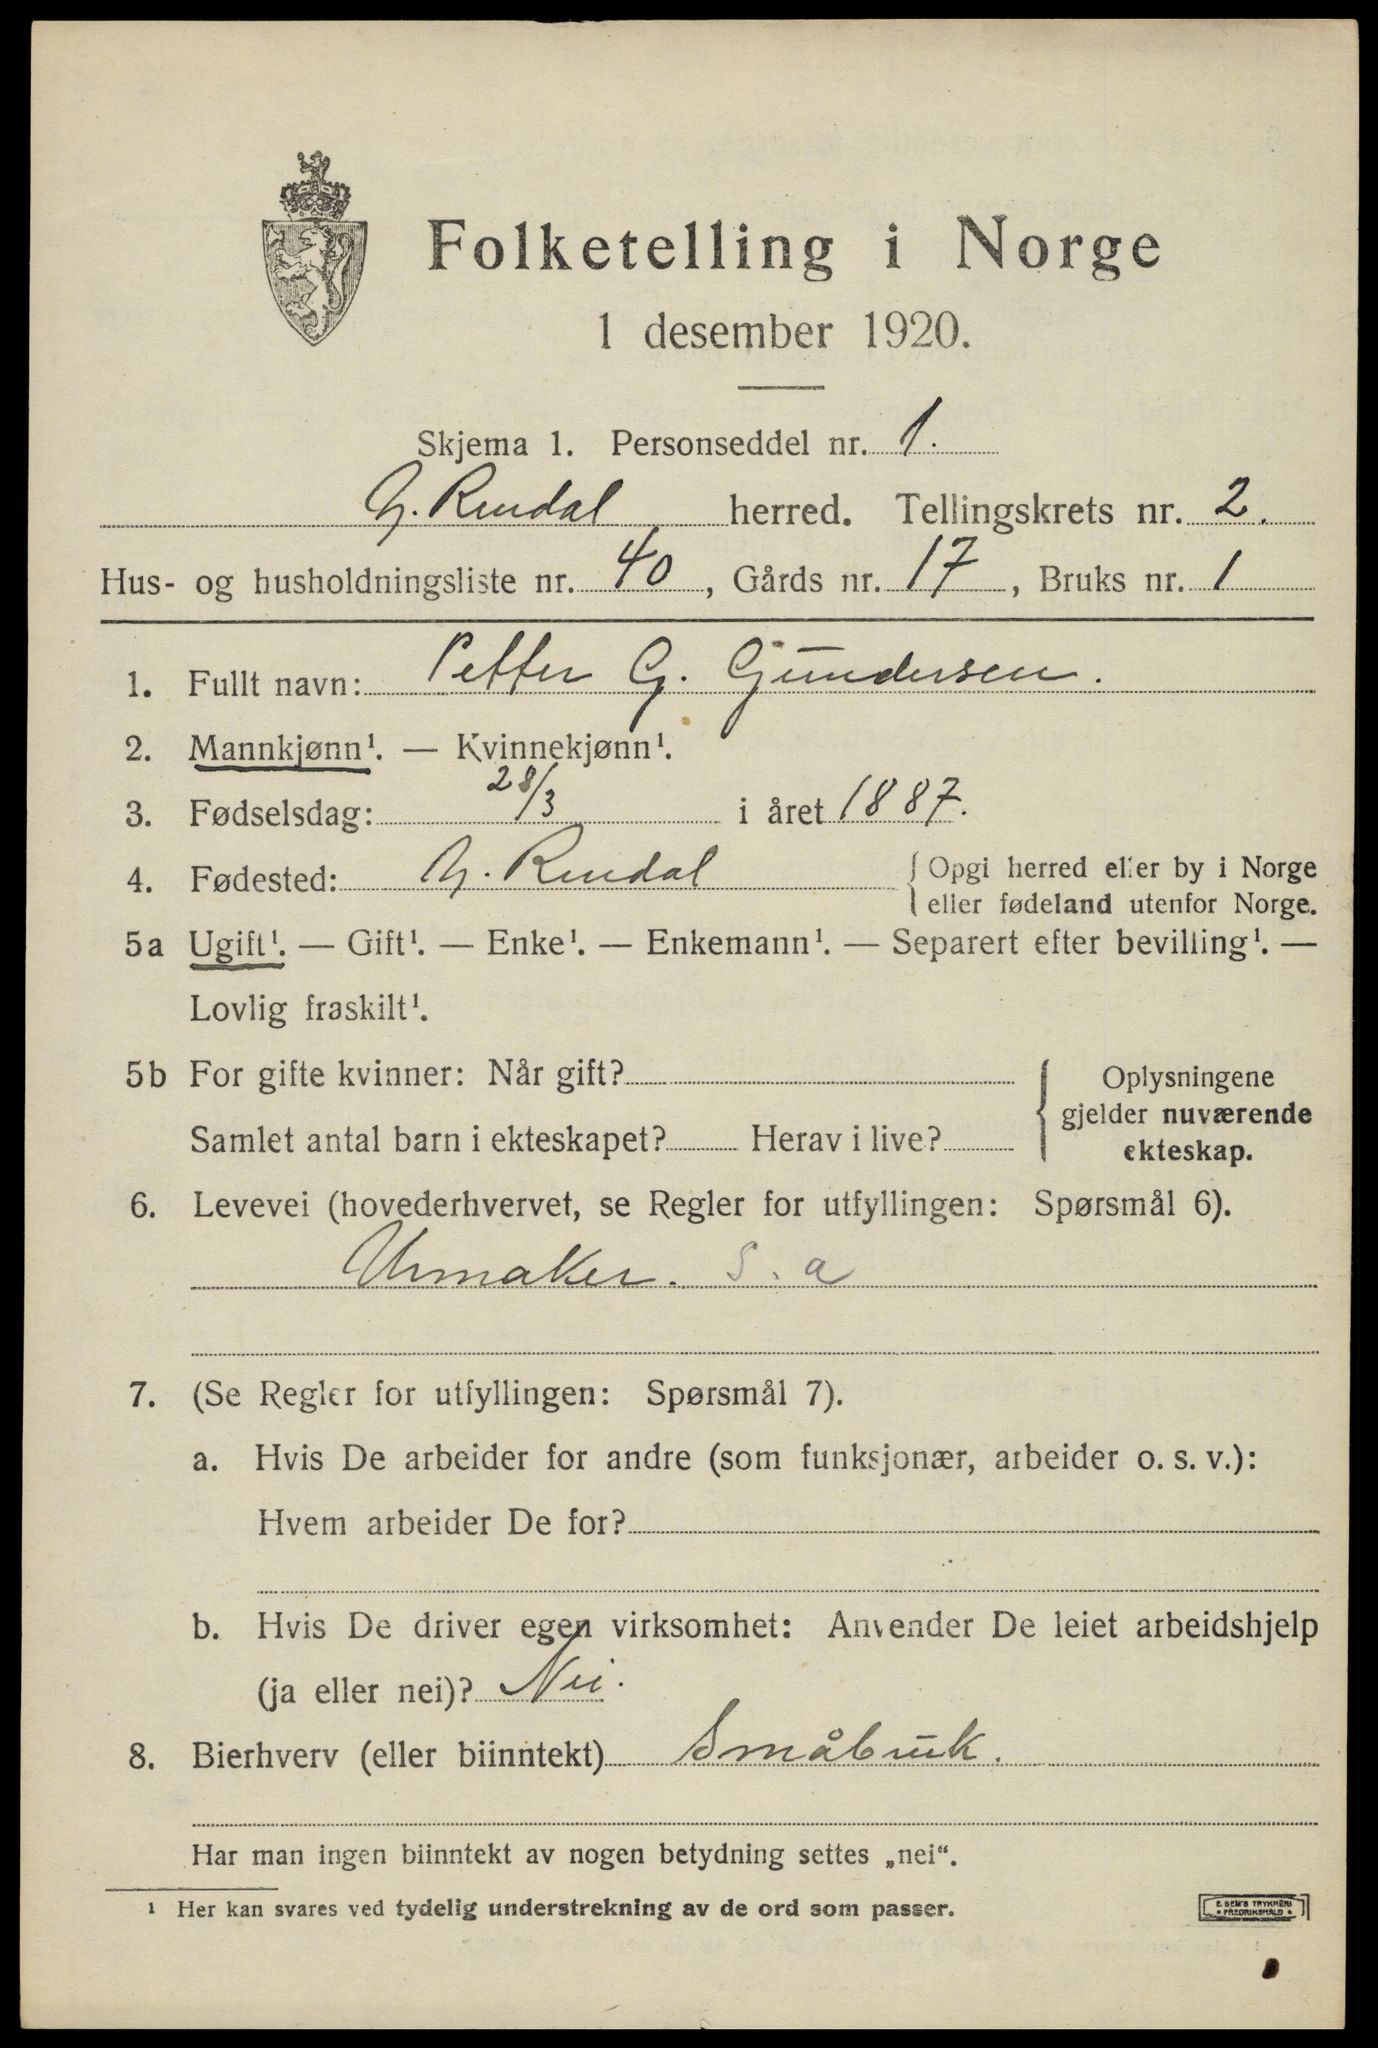 Folketelling i Norge
1 desember 1920.
Skjema 1. Personseddel nr. 1.
N. Rindal herred. Tellingskrets nr. 2.
Hus- og husholdningsliste nr. 40, Gårds nr. 17, Bruks nr. 1
1. Fullt navn: Petter G. Gundersen.
2. Mannkjønn¹. — Kvinnekjønn¹.
3. Fødselsdag: 28/3 i året 1887.
4. Fødested: N. Rindal { Opgi herred eller by i Norge
eller fødeland utenfor Norge.
5a Ugift¹. — Gift¹. — Enke¹. — Enkemann¹. — Separert efter bevilling¹. —
Lovlig fraskilt¹.
5b For gifte kvinner: Når gift? { Oplysningene
gjelder nuværende
Samlet antal barn i ekteskapet? Herav i live?
ekteskap.
6. Levevei (hovederhvervet, se Regler for utfyllingen: Spørsmål 6).
Urmaker. S. a
7. (Se Regler for utfyllingen: Spørsmål 7).
a. Hvis De arbeider for andre (som funksjonær, arbeider o. s. v.):
Hvem arbeider De for?
b. Hvis De driver egen virksomhet: Anvender De leiet arbeidshjelp
(ja eller nei)? Nei.
8. Bierhverv (eller biinntekt) Småbruk.
Har man ingen biinntekt av nogen betydning settes „nei“.
¹ Her kan svares ved tydelig understrekning av de ord som passer.
E. SEM'S TRYKKERI
• FREDRIKSHALD •